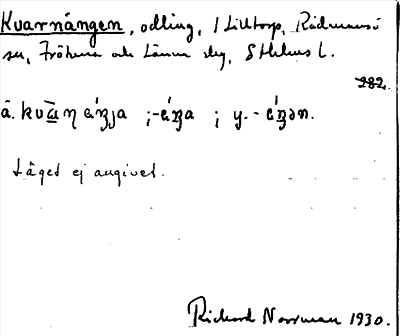 Kvarnängen, odling, 1 Lilltorp, Rådmansö
sn, Fröhuna och Länna slg, Sthlms l.
282.
å. kvāη ǽŋja ; -ǽŋa ; y. - ǽŋən.
Läget ej angivet.
Richard Norrman 1930.